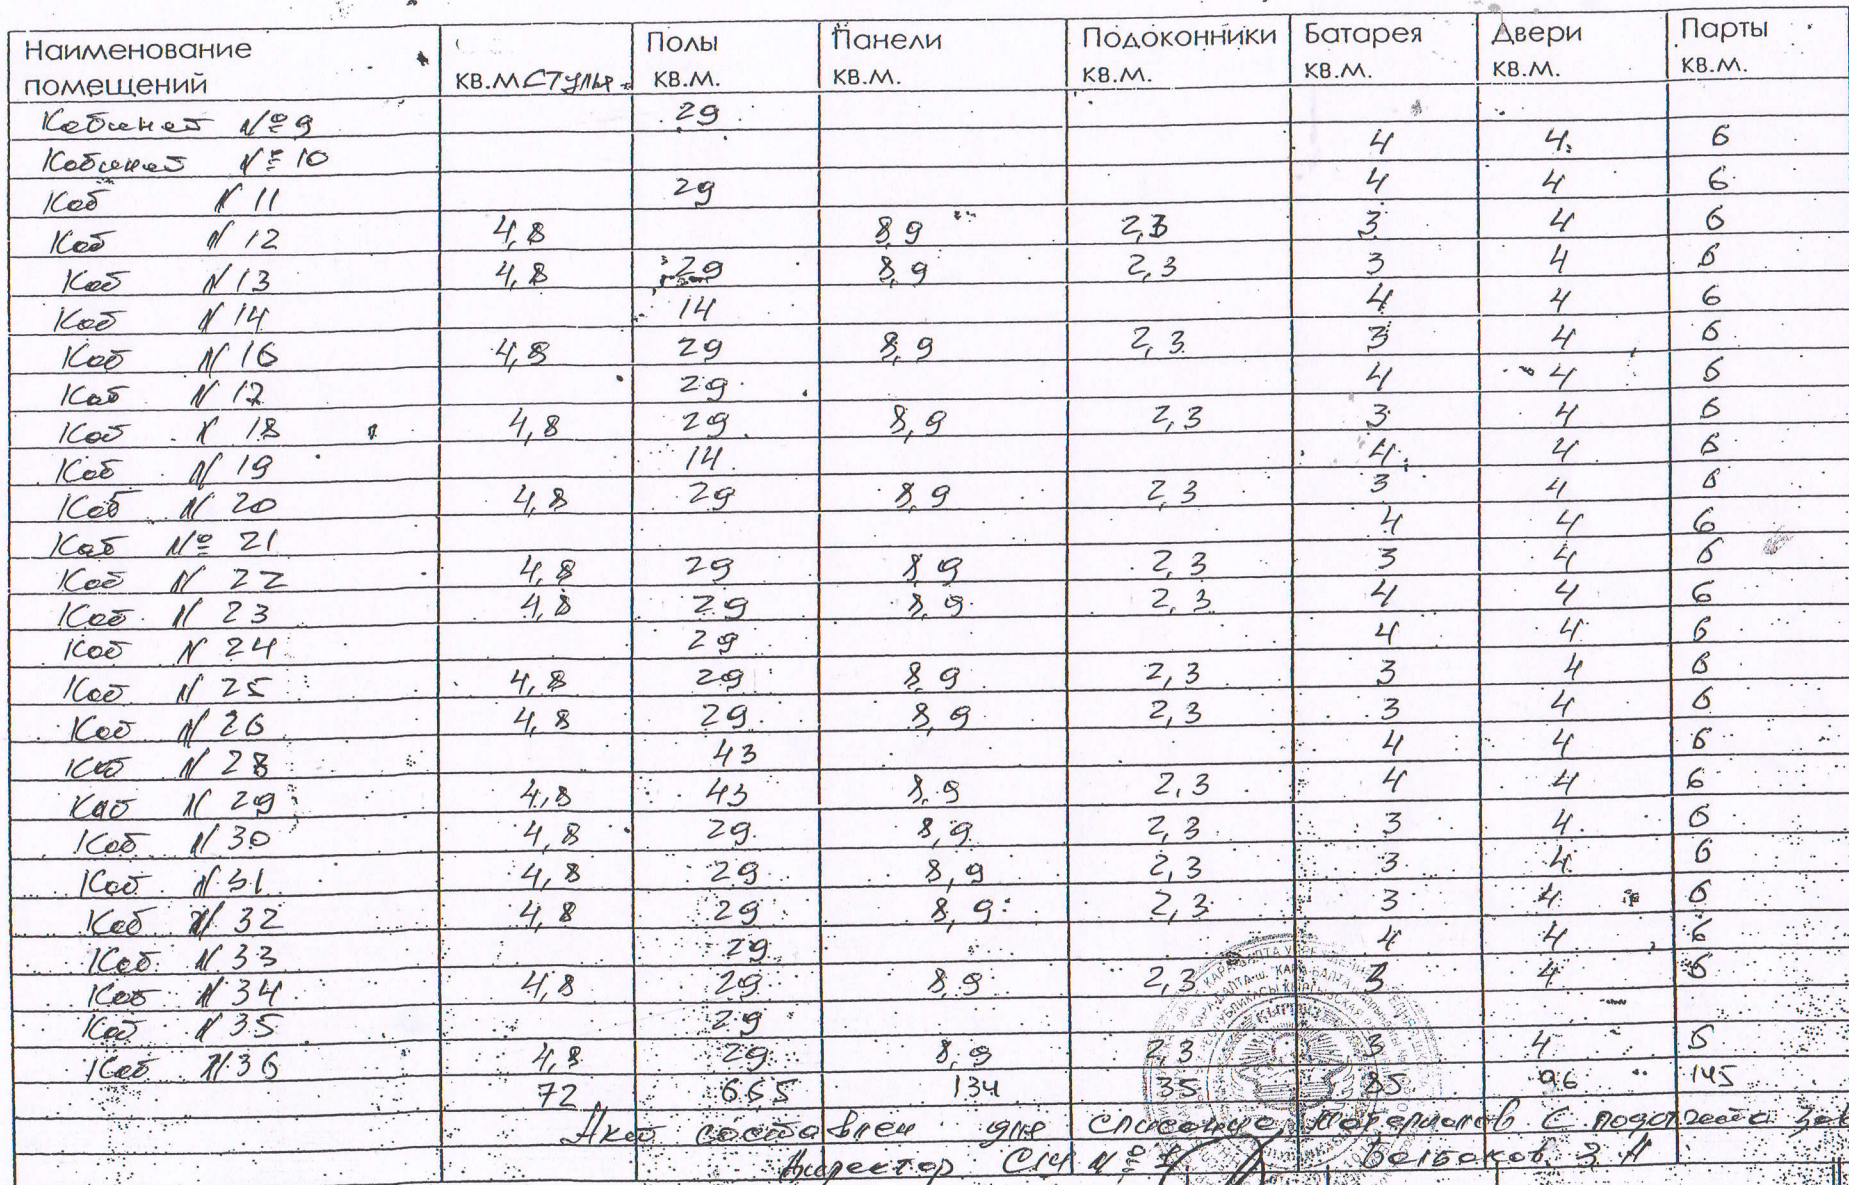 Наименование помещений | кв.м стулья | Полы кв.м. | Панели кв.м. | Подоконники кв.м. | Батарея кв.м. | Двери кв.м. | Парты кв.м.
Кабинет № 9 | | 29 | | | | |
Кабинет № 10 | | | | | 4 | 4 | 6
Каб N 11 | | 29 | | | 4 | 4 | 6
Каб N 12 | 4,8 | | 8,9 | 2,3 | 3 | 4 | 6
Каб N 13 | 4,8 | 29 | 8,9 | 2,3 | 3 | 4 | 6
Каб N 14 | | 14 | | | 4 | 4 | 6
Каб N 16 | 4,8 | 29 | 8,9 | 2,3 | 3 | 4 | 6
Каб N 17 | | 29 | | | 4 | 4 | 6
Каб N 18 | 4,8 | 29 | 8,9 | 2,3 | 3 | 4 | 6
Каб N 19 | | 14 | | | 4 | 4 | 6
Каб N 20 | 4,8 | 29 | 8,9 | 2,3 | 3 | 4 | 6
Каб № 21 | | | | | 4 | 4 | 6
Каб N 22 | 4,8 | 29 | 8,9 | 2,3 | 3 | 4 | 6
Каб N 23 | 4,8 | 29 | 8,9 | 2,3 | 4 | 4 | 6
Каб N 24 | | 29 | | | 4 | 4 | 6
Каб N 25 | 4,8 | 29 | 8,9 | 2,3 | 3 | 4 | 6
Каб N 26 | 4,8 | 29 | 8,9 | 2,3 | 3 | 4 | 6
Каб N 28 | | 43 | | | 4 | 4 | 6
Каб N 29 | 4,8 | 43 | 8,9 | 2,3 | 4 | 4 | 6
Каб N 30 | 4,8 | 29 | 8,9 | 2,3 | 3 | 4 | 6
Каб N 31 | 4,8 | 29 | 8,9 | 2,3 | 3 | 4 | 6
Каб N 32 | 4,8 | 29 | 8,9 | 2,3 | 3 | 4 | 6
Каб N 33 | | 29 | | | 4 | 4 | 6
Каб N 34 | 4,8 | 29 | 8,9 | 2,3 | 3 | 4 | 6
Каб N 35 | | 29 | | | | |
Каб N 36 | 4,8 | 29 | 8,9 | 2,3 | 3 | 4 | 6
| 72 | 665 | 134 | 35 | 85 | 96 | 145
Акт составлен для списания материалов с подотчета зав
Директор СШ №